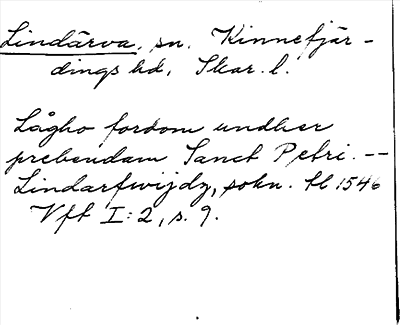 Lindärva, sn. Kinnefjär-
dings hd, Skar. l.
Lågho fordom undher
prebendam Sanct Petri. --
Lindarfwijdz, sokn. tl 1546
Vft I:2, s. 9.